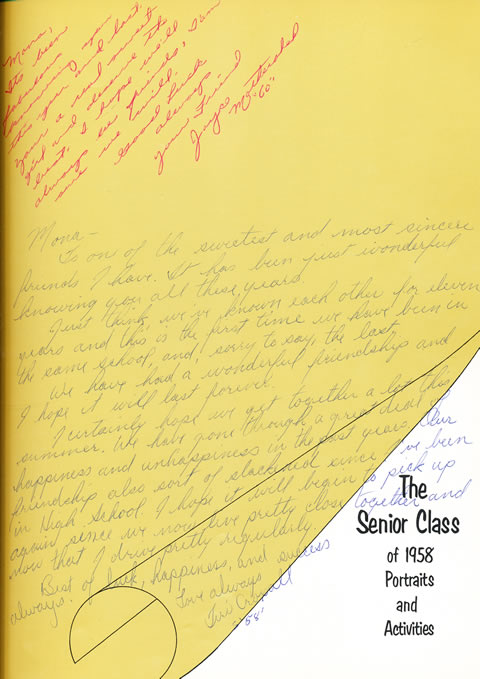 Mona,
Its been
fabulous
knowing you
this year and last.
your a real sweet
girl and deserve the
best. I hope we'll
always be friends, I am
sure we will.
Good luck
always
your friend
Joyce
"60"
Mona-
To one of the sweetest and most sincere
friends I have. It has been just wonderful
knowing you all these years.
Just think, we've known each other for eleven
years and this is the first time we have been in
the same school, and, sorry to say, the last.
We have had a wonderful friendship and
I hope it will last forever.
I certainly hope we get together a lot this
summer. We have gone through a great deal of
happiness and unhappiness in the past years. Our
friendship also sort of slackened since I've been
in High School. I hope it will begin to pick up
again since we now live pretty close together and
now that I drive pretty regularly.
Best of luck, happiness, and success
always!
Love always
'58'
The
Senior Class
of 1958
Portraits
and
Activities